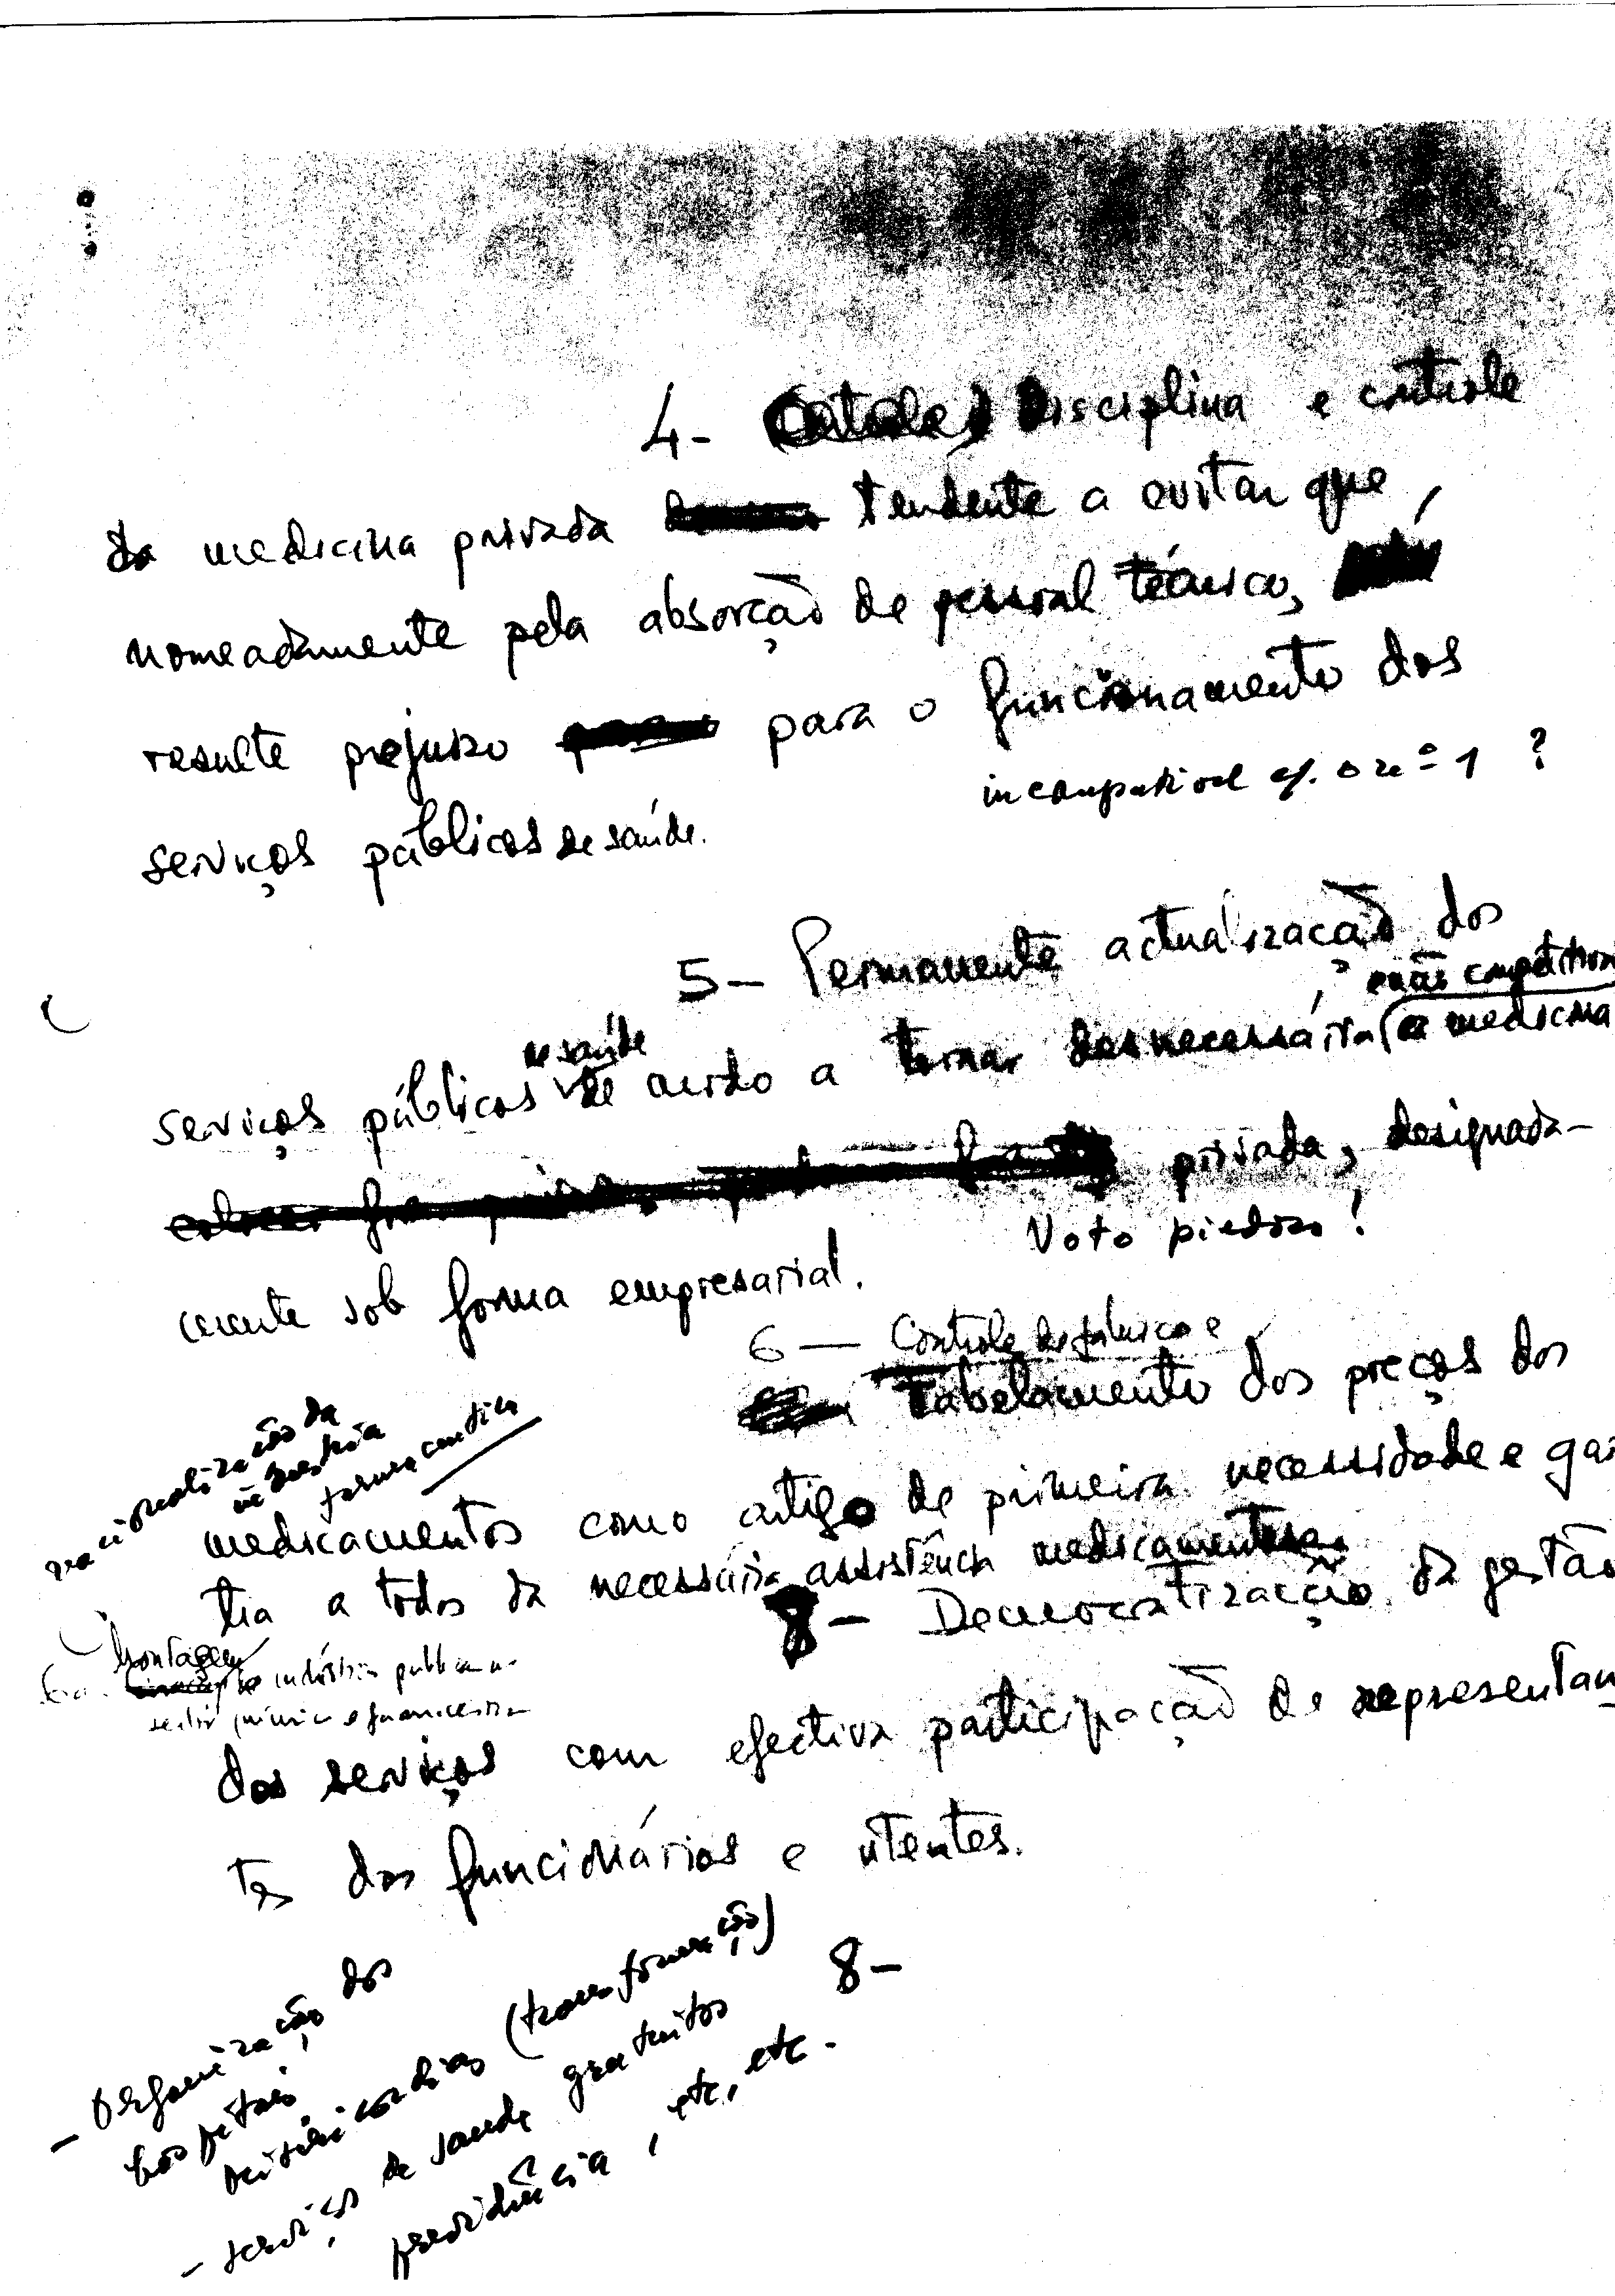 4- Disciplina e controle
da medicina privada tendente a evitar que,
nomeadamente pela absorção de pessoal técnico,
resulte prejuizo para o funcionamento dos
incompativel c/. o nº 1 ?
serviços públicos de saúde.
5- Permanente actualização dos
não competitiva
de saúde
serviços públicos de modo a tornar desnecessária (a medicina
privada, designada-
Voto piedoso!
mente sob forma empresarial.
6 — Controle de fabrico e
Tabelamento dos preços dos
nacionalização da
indústria
farmaceutica
medicamentos como artigo de primeira necessidade e gar
tia a todos da necessária assistência medicamentosa.
8- Democratização da gestão
Montagem
6a. indústria publica no
sector químico e farmaceutico
dos serviços com efectiva participação de representan
tes dos funcionários e utentes.
8-
- Organização dos
hospitais
misericordias (transformação)
- serviços de saude gratuitos
previdência, etc, etc.